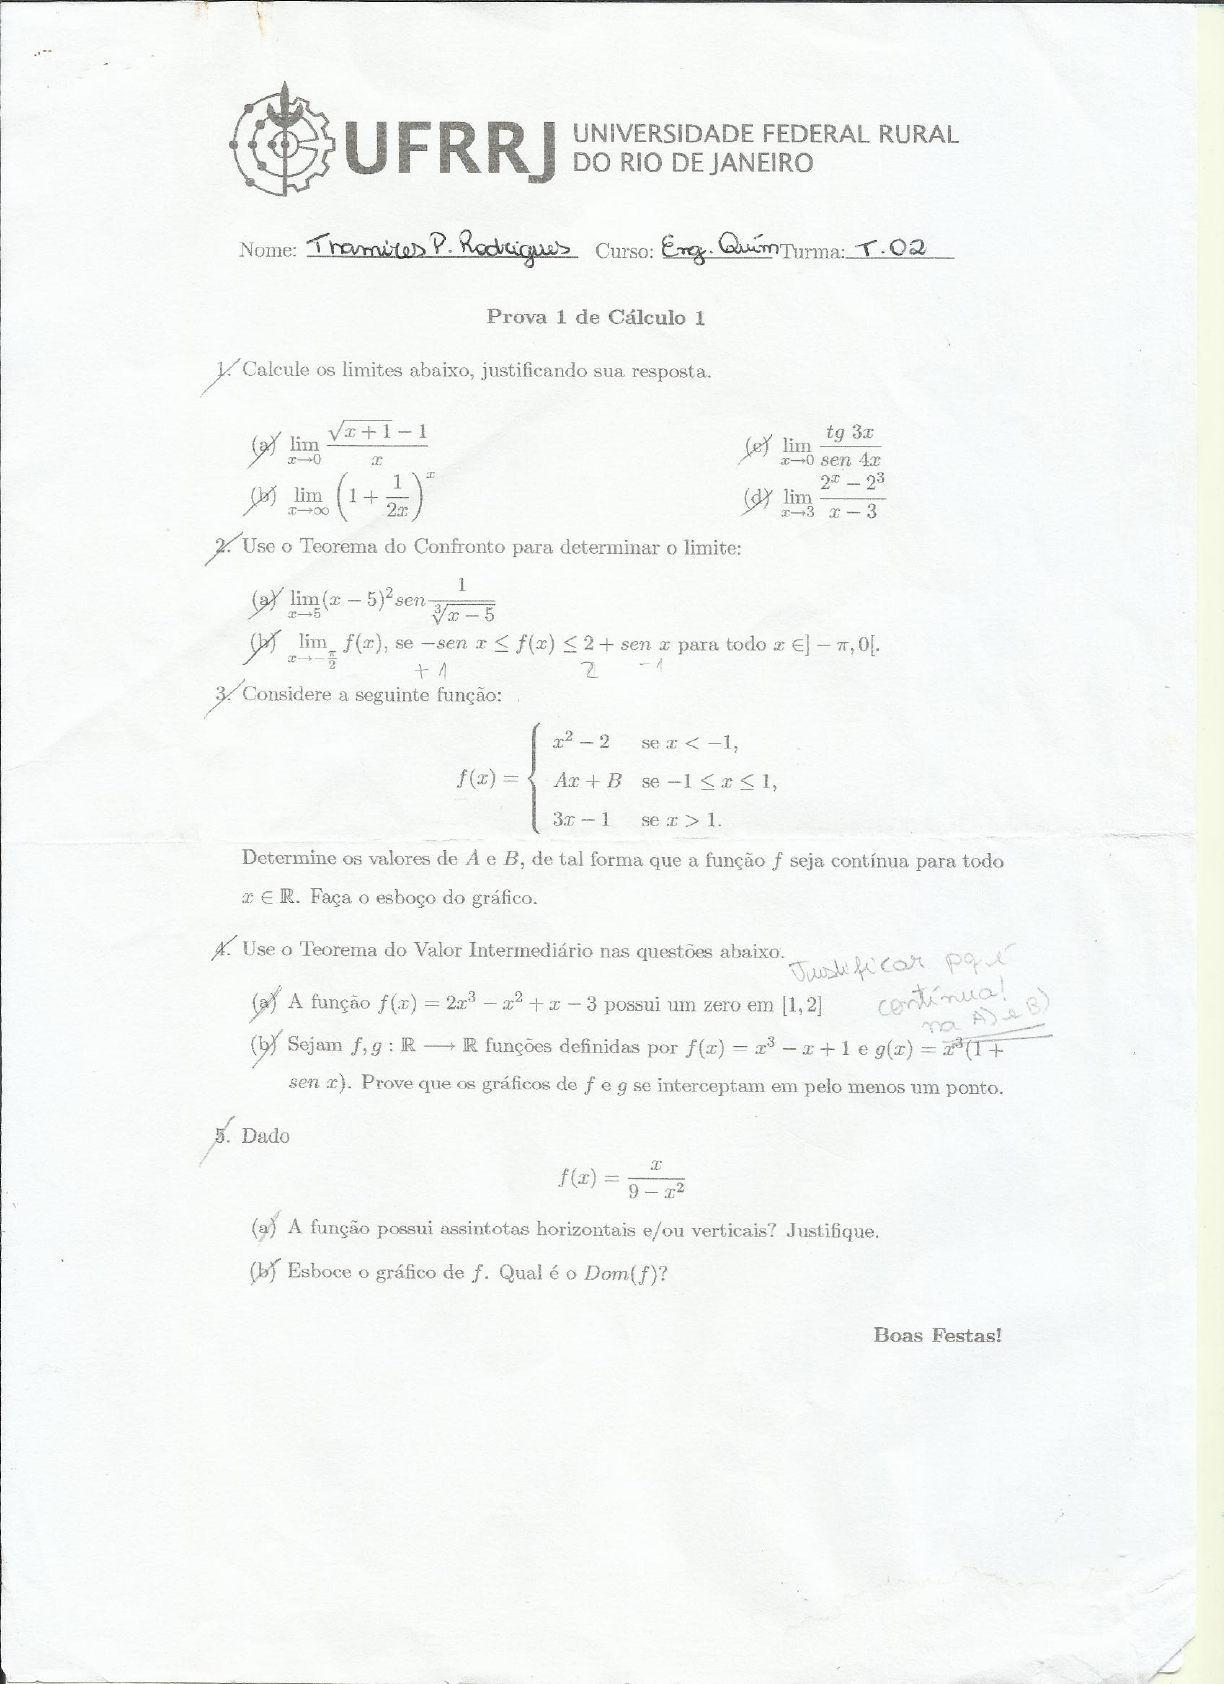 UFRRJ UNIVERSIDADE FEDERAL RURAL
DO RIO DE JANEIRO
Nome: Thamires P. Rodrigues Curso: Eng. Quím Turma: T.02
Prova 1 de Cálculo 1
1. Calcule os limites abaixo, justificando sua resposta.
(a) lim x→0 (√(x + 1) − 1)/x
(b) lim x→∞ (1 + 1/(2x))^x
(c) lim x→0 (tg 3x)/(sen 4x)
(d) lim x→3 (2^x − 2^3)/(x − 3)
2. Use o Teorema do Confronto para determinar o limite:
(a) lim x→5 (x − 5)² sen 1/∛(x − 5)
(b) lim x→−π/2 f(x), se −sen x ≤ f(x) ≤ 2 + sen x para todo x ∈] − π, 0[.
+1 2 −1
3. Considere a seguinte função:
f(x) = { x² − 2 se x < −1,
Ax + B se −1 ≤ x ≤ 1,
3x − 1 se x > 1.
Determine os valores de A e B, de tal forma que a função f seja contínua para todo
x ∈ ℝ. Faça o esboço do gráfico.
4. Use o Teorema do Valor Intermediário nas questões abaixo.
Justificar pq é
contínua!
na A) e B)
(a) A função f(x) = 2x³ − x² + x − 3 possui um zero em [1, 2]
(b) Sejam f, g : ℝ ⟶ ℝ funções definidas por f(x) = x³ − x + 1 e g(x) = x³(1 +
sen x). Prove que os gráficos de f e g se interceptam em pelo menos um ponto.
5. Dado
f(x) = x/(9 − x²)
(a) A função possui assintotas horizontais e/ou verticais? Justifique.
(b) Esboce o gráfico de f. Qual é o Dom(f)?
Boas Festas!